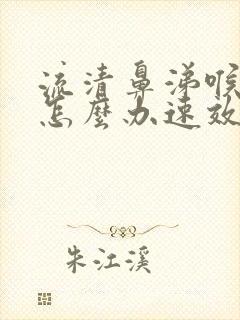 流清鼻涕喉
怎麽办速效
朱江溪